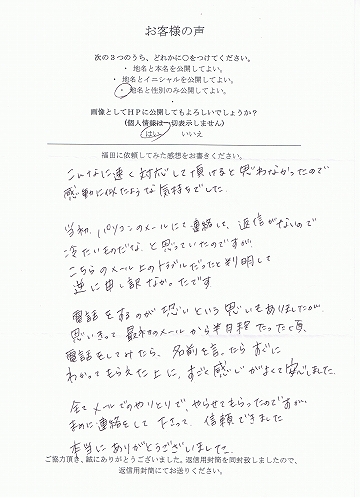 お客様の声
次の3つのうち、どれかに○をつけてください。
・地名と本名を公開してよい。
・地名とイニシャルを公開してよい。
・地名と性別のみ公開してよい。
画像としてHPに公開してもよろしいでしょうか？
(個人情報は一切表示しません)
はい　いいえ
福田に依頼してみた感想をお書きください。
こんなに速く対応して頂けると思わなかったので
感動に似たような気持ちでした。
当初、パソコンのメールにて連絡し、返信がないので
冷たいものだな、と思っていたのですが、
こちらのメール上のトラブルだったと判明して
逆に申し訳なかったです
電話をするのが恐いという思いもありましたが、
思いきって最初のメールから半日程たった頃、
電話をしてみたら、名前を言ったらすぐに
わかってもらえた上に、すごく感じがよくて安心しました。
全てメールでのやりとりで、やらせてもらったのですが、
まめに連絡をして下さって、信頼できました
本当にありがとうございました。
ご協力頂き、誠にありがとうございました。返信用封筒を同封致しましたので、
返信用封筒にてお送りください。